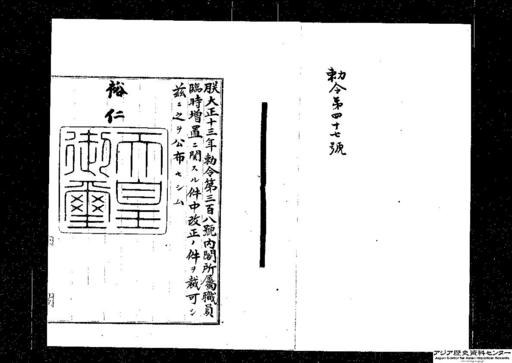 勅令第四十七號
朕大正十三年勅令第三百八號内閣所屬職員
臨時増置ニ關スル件中改正ノ件ヲ裁可シ
玆ニ之ヲ公布セシム
裕仁
天皇
御璽
アジア歴史資料センター
Japan Center for Asian Historical Records